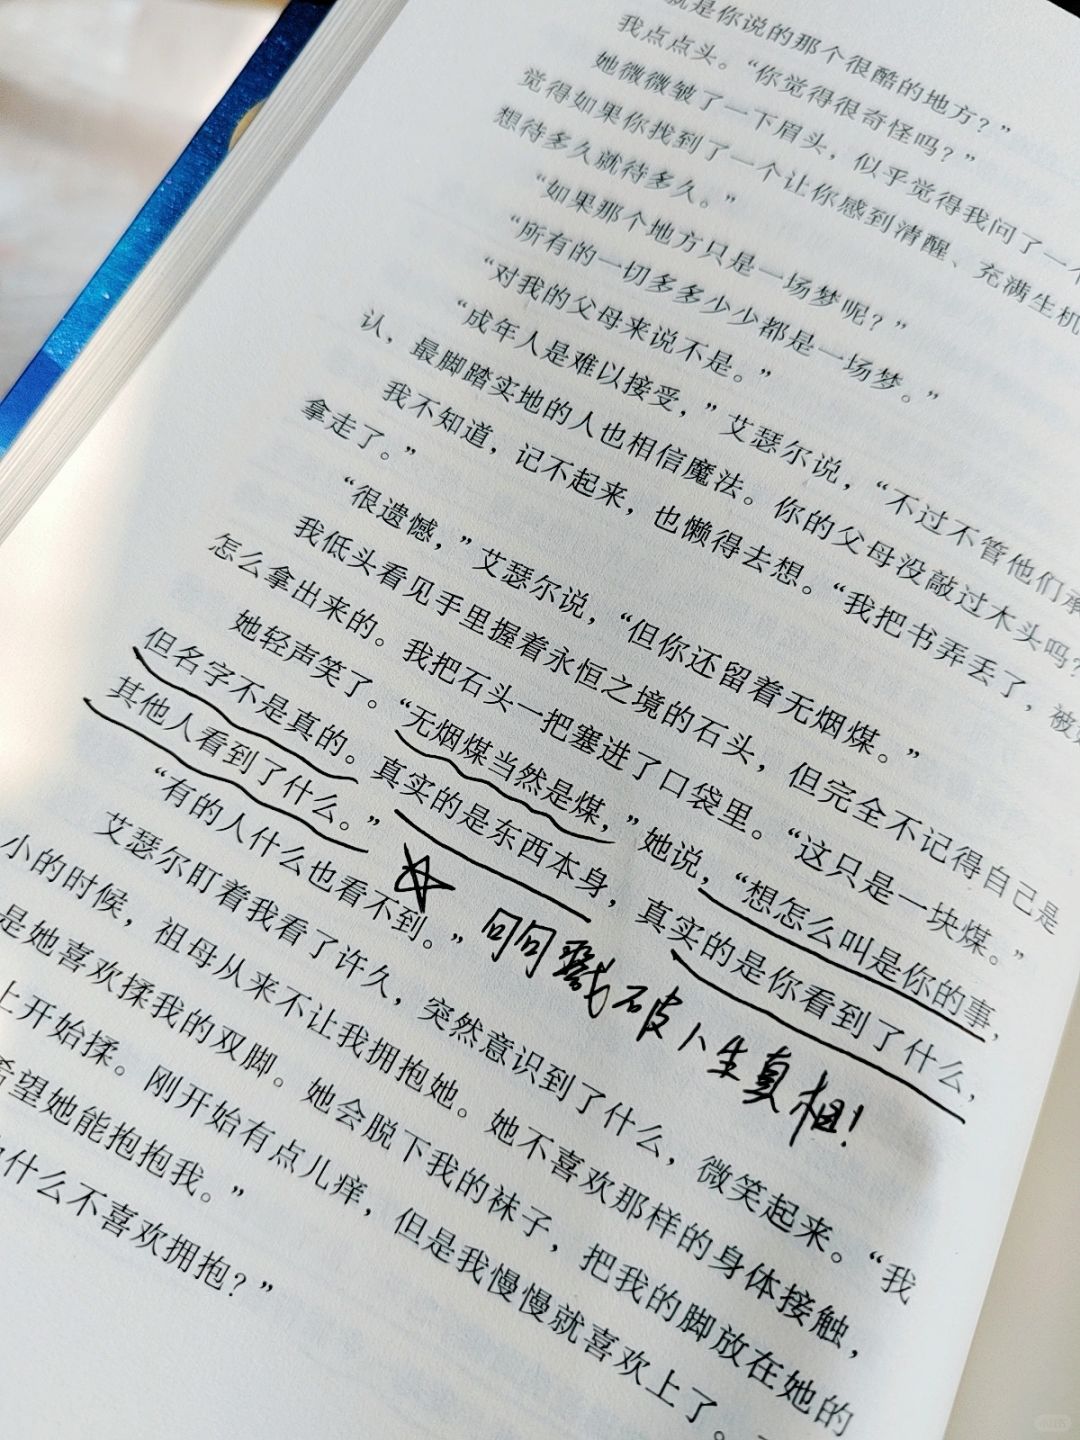 就是你说的那个很酷的地方？”
我点点头。“你觉得很奇怪吗？”
她微微皱了一下眉头，似乎觉得我问了一个
觉得如果你找到了一个让你感到清醒、充满生机
想待多久就待多久。”
“如果那个地方只是一场梦呢？”
“所有的一切多多少少都是一场梦。”
“对我的父母来说不是。”
“成年人是难以接受，”艾瑟尔说，“不过不管他们承
认，最脚踏实地的人也相信魔法。你的父母没敲过木头吗？
我不知道，记不起来，也懒得去想。“我把书弄丢了，被
拿走了。”
“很遗憾，”艾瑟尔说，“但你还留着无烟煤。”
我低头看见手里握着永恒之境的石头，但完全不记得自己是
怎么拿出来的。我把石头一把塞进了口袋里。“这只是一块煤。”
她轻声笑了。“无烟煤当然是煤，”她说，“想怎么叫是你的事，
但名字不是真的。真实的是东西本身，真实的是你看到了什么，
其他人看到了什么。”
“有的人什么也看不到。”
句句戳破人生真相！
艾瑟尔盯着我看了许久，突然意识到了什么，微笑起来。“我
小的时候，祖母从来不让我拥抱她。她不喜欢那样的身体接触，
是她喜欢揉我的双脚。她会脱下我的袜子，把我的脚放在她的
上开始揉。刚开始有点儿痒，但是我慢慢就喜欢上了。
希望她能抱抱我。”
为什么不喜欢拥抱？”